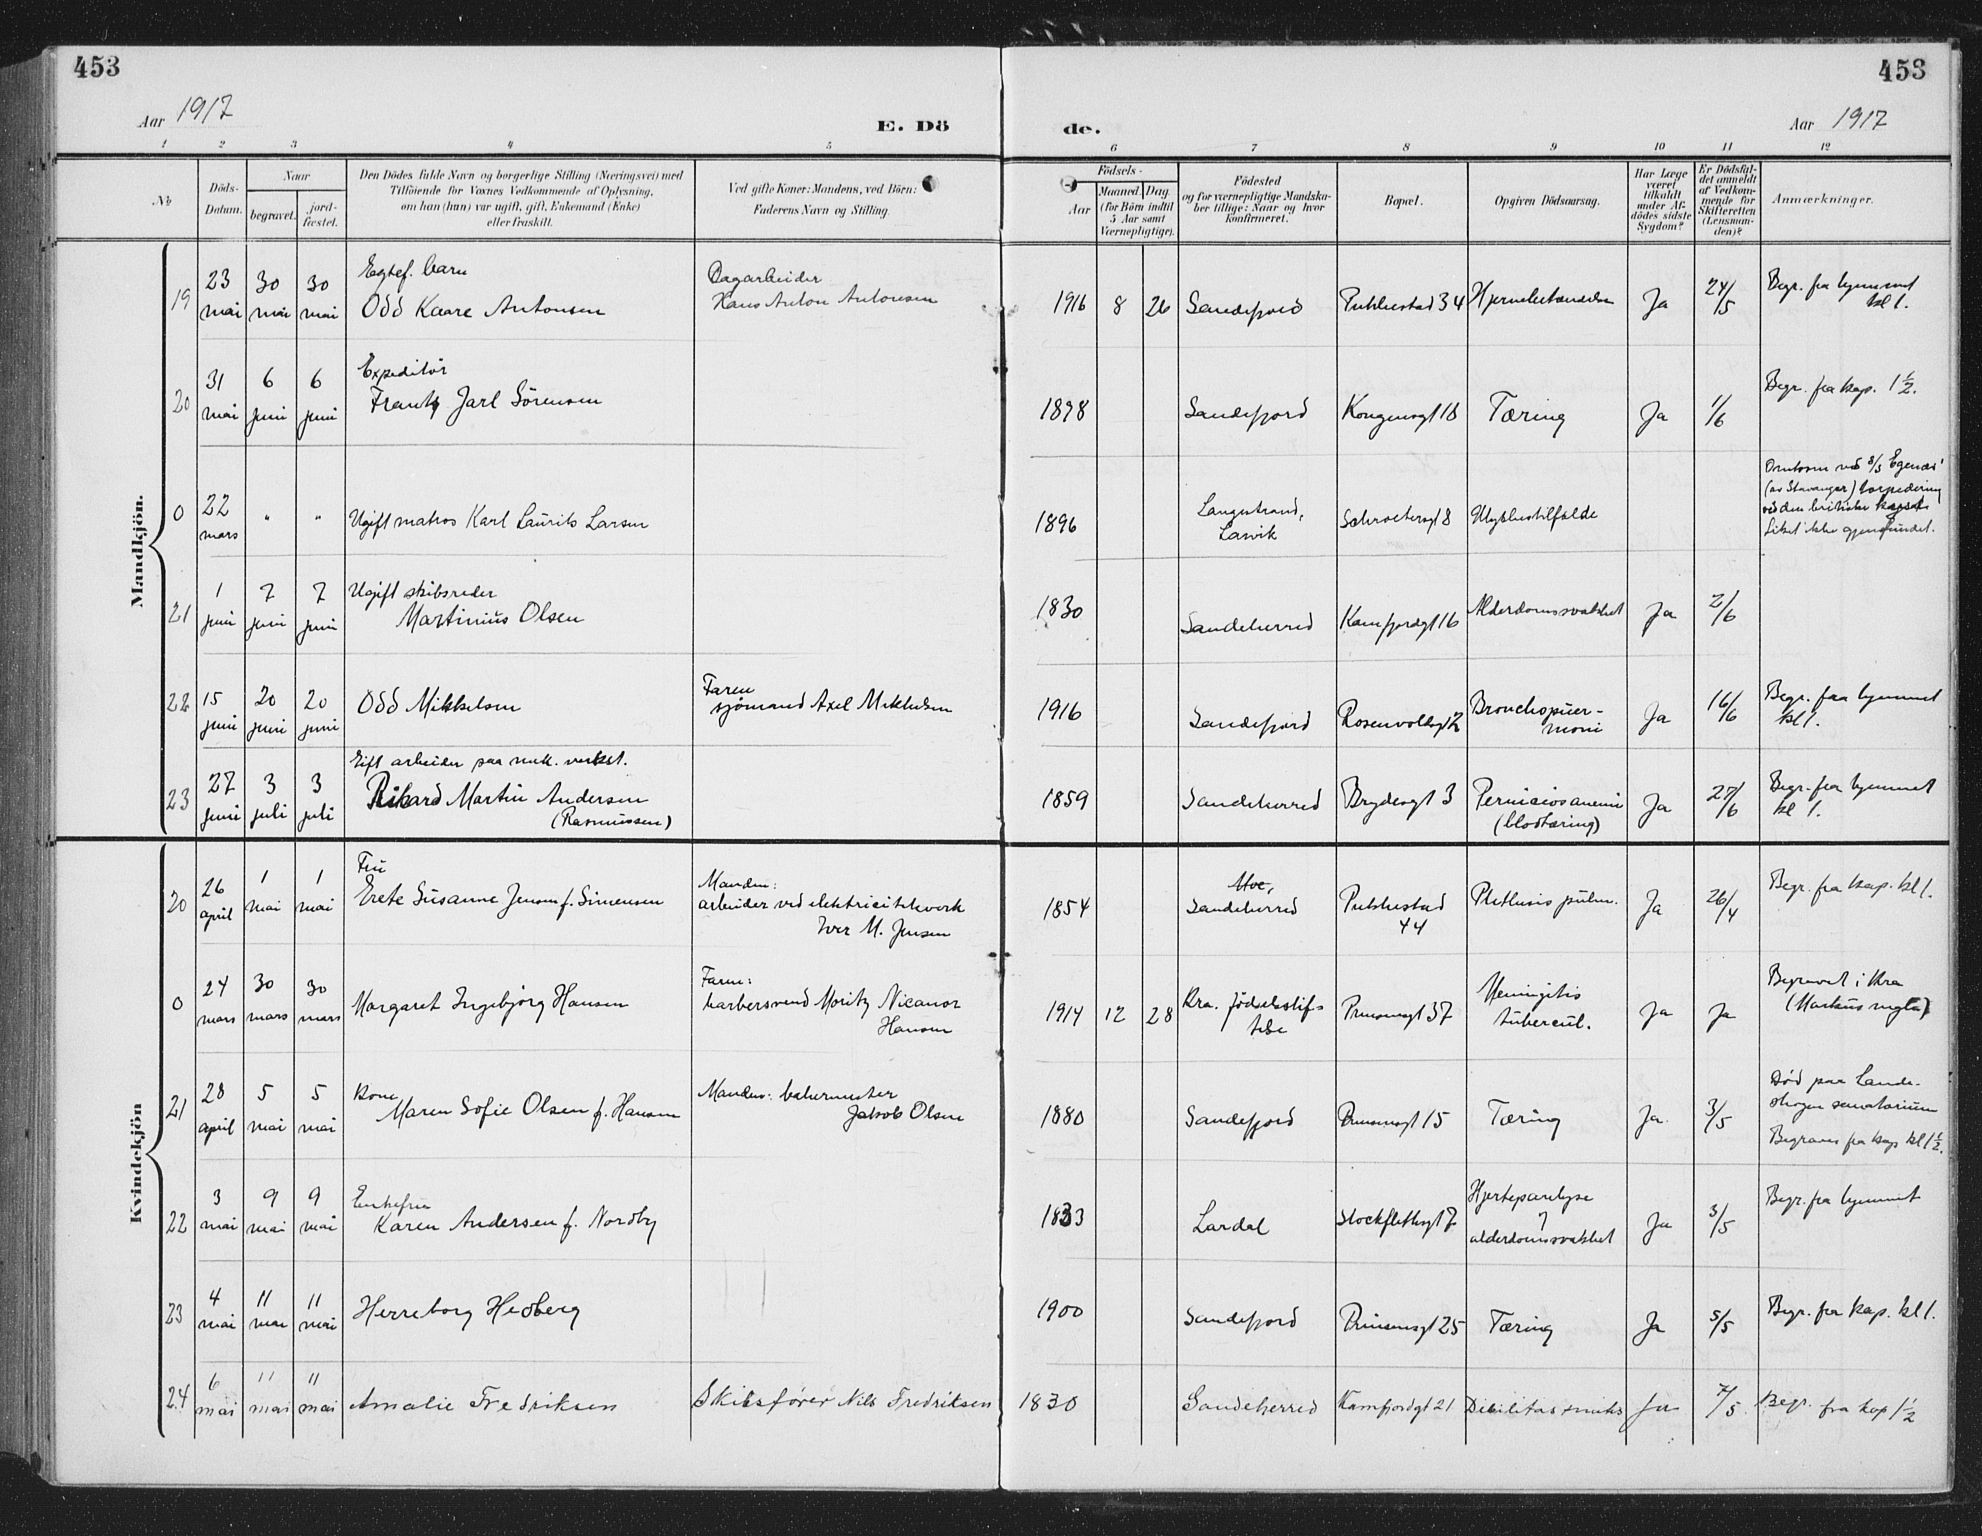 453
453
Aar 1917
E. Dö
de.
Aar 1917
1 2 3 4 5 6 7 8 9 10 11 12
No
Döds-Datum.
Naar
begravet.
jord-fæstet.
Den Dödes fulde Navn og borgerlige Stilling (Næringsvei) med
Tilföiende for Voxnes Vedkommende af Oplysning,
om han (hun) var ugift, gift, Enkemand (Enke)
eller fraskilt.
Ved gifte Koner: Mandens, ved Börn:
Faderens Navn og Stilling.
Födsels-
Aar
Maaned. Dag.
(for Börn indtil
5 Aar samt
Værnepligtige).
Födested
og for værnepligtige Mandska-
ber tillige: Naar og hvor
konfirmeret.
Bopæl.
Opgiven Dödsaarsag.
Har Læge
været
tilkaldt
under Af-
dödes sidste
Sygdom?
Er Dödsfal-
det anmeldt
af Vedkom-
mende for
Skifteretten
(Lensman-
den)?
Anmærkninger.
Mandkjön.
19 23 mai 30 mai 30 mai
Egtef. barn
Odd Kaare Antonsen
Dagarbeider
Hans Anton Antonsen
1916 8 26 Sandefjord Pukkestad 34 Hjernebetændelse Ja 24/5
Begr. fra hjemmet
kl 1.
20 31 mai 6 juni 6 juni
Expeditör
Frantz Jarl Sörensen
1898 Sandefjord Kongensgt 18 Tæring Ja 1/6
Begr. fra kap. 1 1/2.
0 22 mars " "
Ugift matros Karl Laurits Larsen
1896 Langestrand,
Larvik
Schroetersgt 8 Ulykkestilfælde
Omkom ved S/S Egenæs'
(av Stavanger) torpedering
ved den britiske kyst
Liket ikke gjenfundet.
21 1 juni 7 juni 7 juni
Ugift skibsreder
Martinius Olsen
1830 Sandeherred Kamfjordgt 16 Alderdomssvakhet Ja 2/6
22 15 juni 20 juni 20 juni
Odd Mikkelsen
Faren
sjömand Axel Mikkelsen
1916 Sandefjord Rosenvoldsgt Bronchopneu-
moni
Ja 16/6
Begr. fra hjemmet
kl 1.
23 27 juni 3 juli 3 juli
Gift arbeider paa mek. verkst.
Rikard Martin Andersen
(Rasmussen)
1859 Sandeherred Brydesgt 3 Perniciøs anemi
(blodtæring)
Ja 27/6
Begr. fra hjemmet
kl 1.
Kvindekjön
20 26 april 1 mai 1 mai
Fru
Grete Susanne Jensen f. Simensen
Manden:
arbeider ved elektricitetsverk
Iver M. Jensen
1854 Moe,
Sandeherred
Pukkestad
44
Phthisis pulm. Ja 26/4
Begr. fra kap. kl 1.
0 24 mars 30 mars 30 mars
Margaret Ingebjørg Hansen
Faren:
barbersvend Moritz Nicanor
Hansen
1914 12 28 Kra. födselsstif-
telse
Prinsensgt 37 Meningitis
tubercul.
Ja Ja
Begravet i Kra
21 28 april 5 mai 5 mai
Kone
Maren Sofie Olsen f. Hansen
Manden: bakermester
Jakob Olsen
1880 Sandefjord Prinsensgt 15 Tæring Ja. 3/5
Död paa Lande-
skogen sanatorium
Begraves fra kap kl 1 1/2.
22 3 mai 9 mai 9 mai
Enkefru
Karen Andersen f. Nordby
1833 Lardal Stockflethsgt 7 Hjerteparalyse
og
alderdomssvakhet
Ja 3/5
Begr. fra hjemmet
23 4 mai 11 mai 11 mai
Herreborg Hedberg
1900 Sandefjord Prinsensgt 25 Tæring Ja 5/5
Begr. fra kap. kl 1.
24 6 mai 11 mai 11 mai
Amalie Fredriksen
Skibsfører Nils Fredriksen
1830 Sandeherred Kamfjordgt 21 Ja 7/5
Begr. fra kap 1 1/2